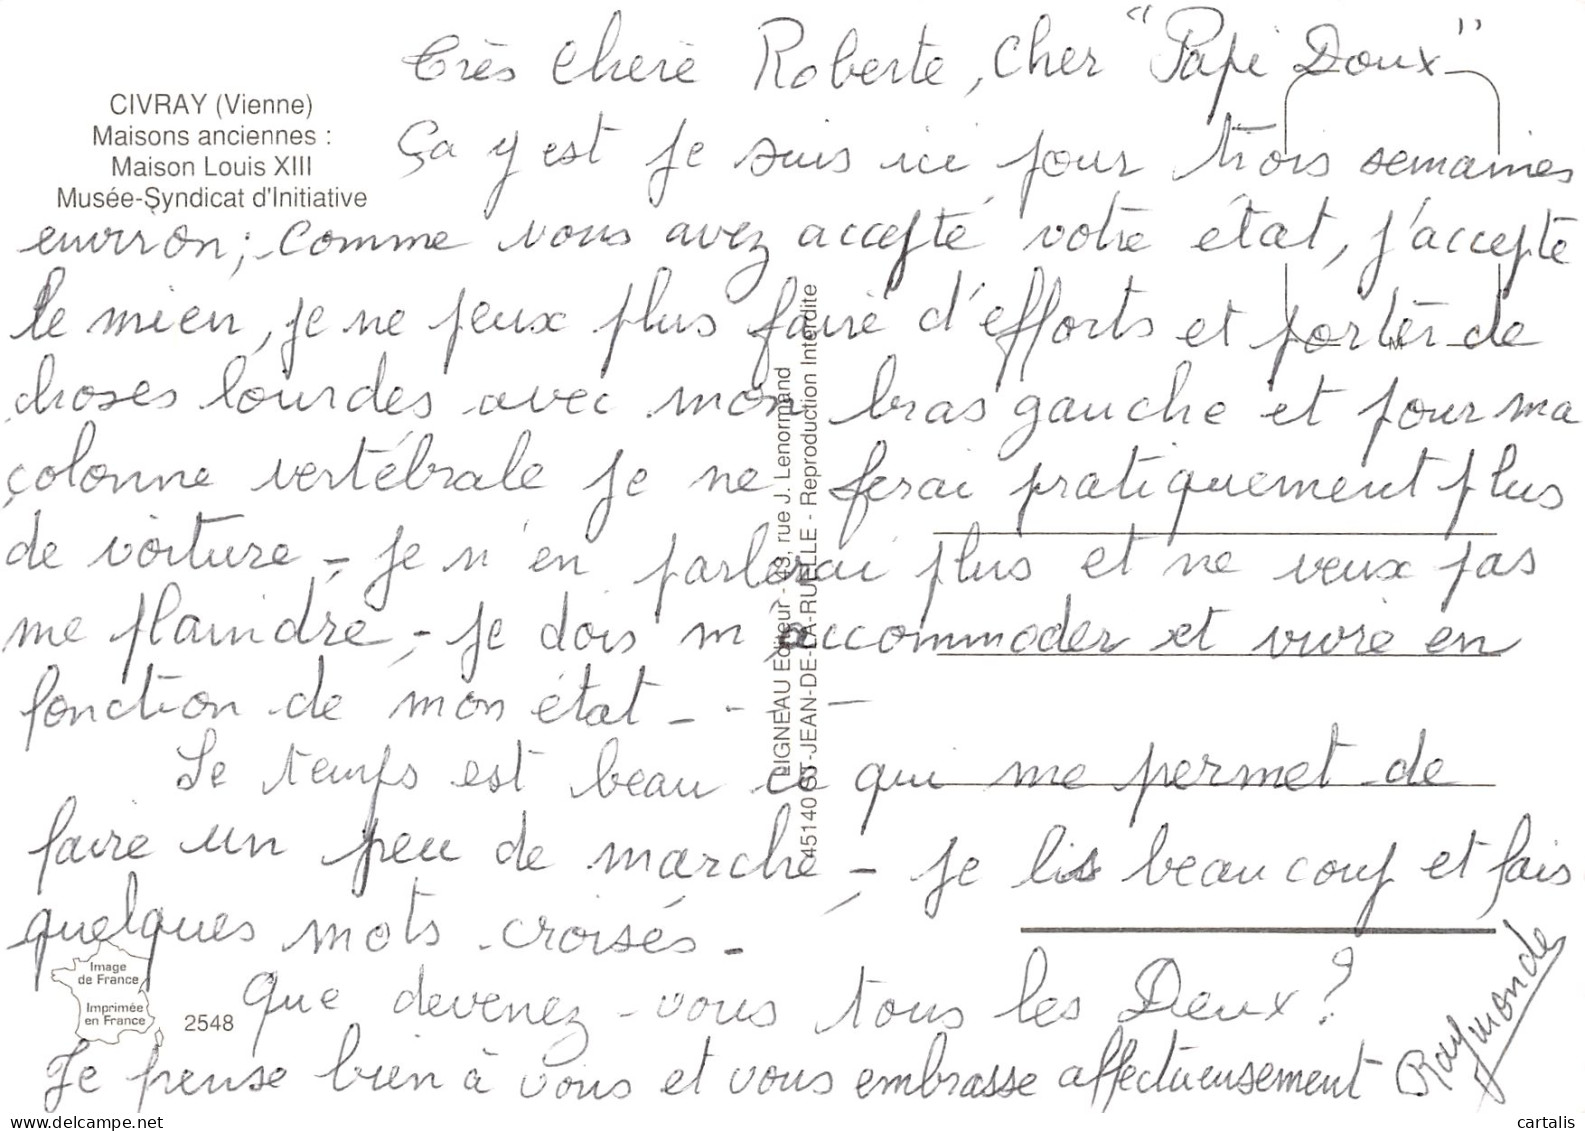 Très chère Roberte, cher "Papi Doux"
CIVRAY (Vienne)
Maisons anciennes :
Maison Louis XIII
Musée-Syndicat d'Initiative
Ça y est je suis ici pour trois semaines
environ; comme vous avez accepté votre état, j'accepte
le mien, je ne peux plus faire d'efforts et porter de
choses lourdes avec mon bras gauche et pour ma
colonne vertébrale je ne ferai pratiquement plus
de voiture - je n'en parlerai plus et ne veux pas
me plaindre - je dois m'accommoder et vivre en
fonction de mon état - - - -
Le temps est beau ce qui me permet de
faire un peu de marche - je lis beaucoup et fais
quelques mots croisés -
Que devenez-vous tous les Deux?
Je pense bien à vous et vous embrasse affectueusement
Raymonde
DIGNEAU Editeur - 43, rue J. Lenormand
45140 ST-JEAN-DE-LA-RUELLE - Reproduction Interdite
Image
de France
Imprimée
en France
2548
www.delcampe.net
cartalis